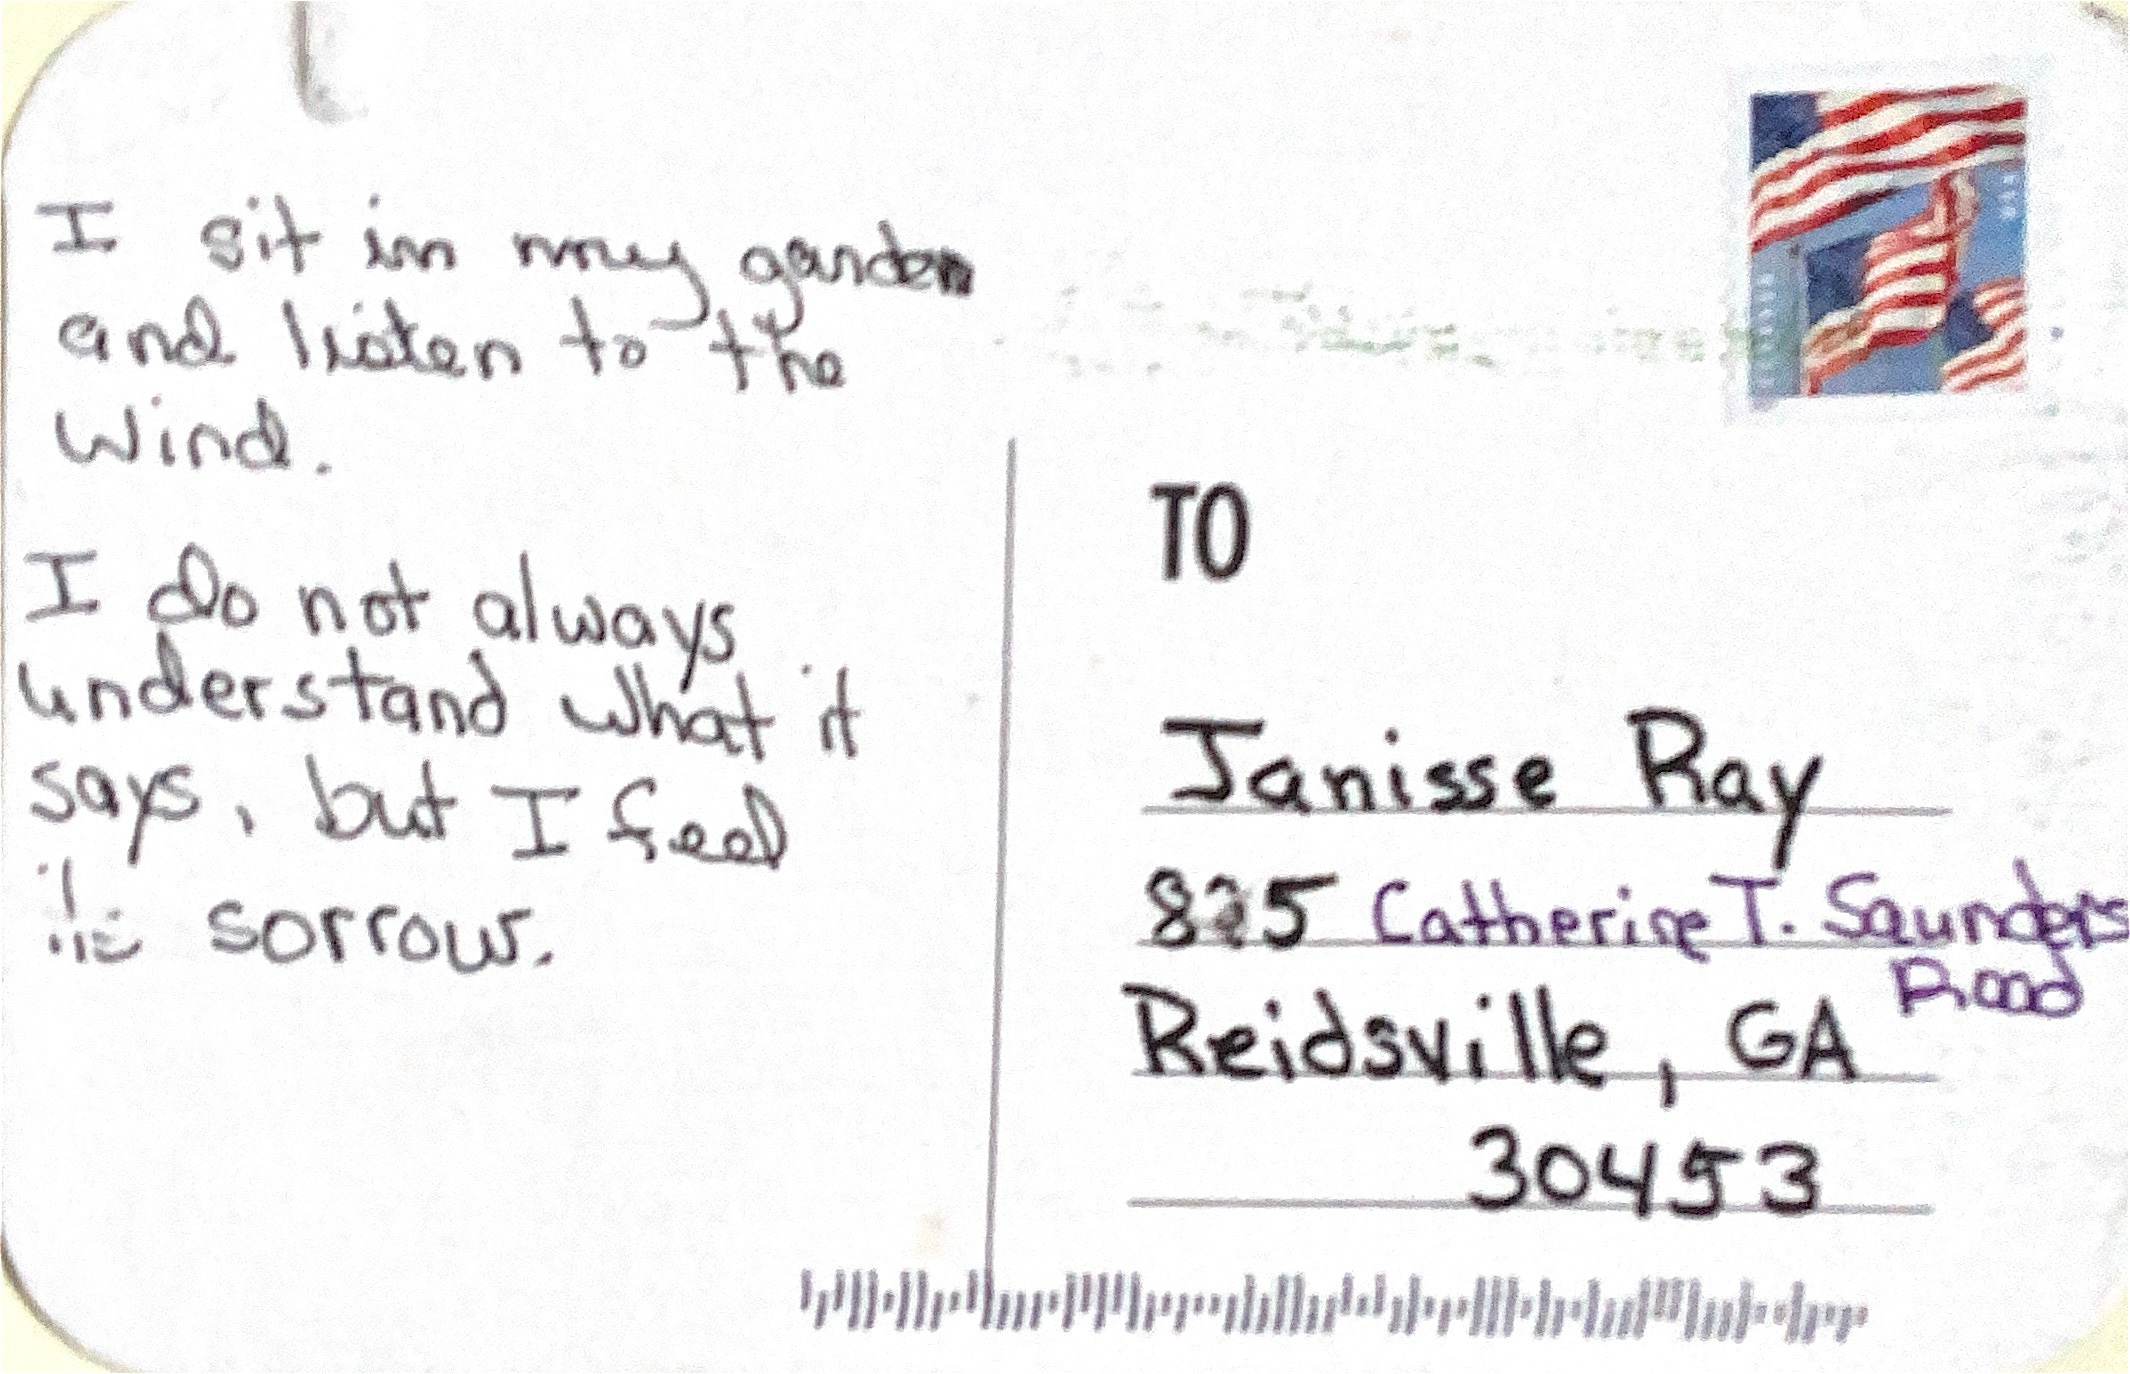 I sit in my garden
and listen to the
Wind.
I do not always
understand what it
says, but I feel
sorrow.
TO
Janisse Ray
825 Catherine T. Saunders
Road
Reidsville, GA
30453